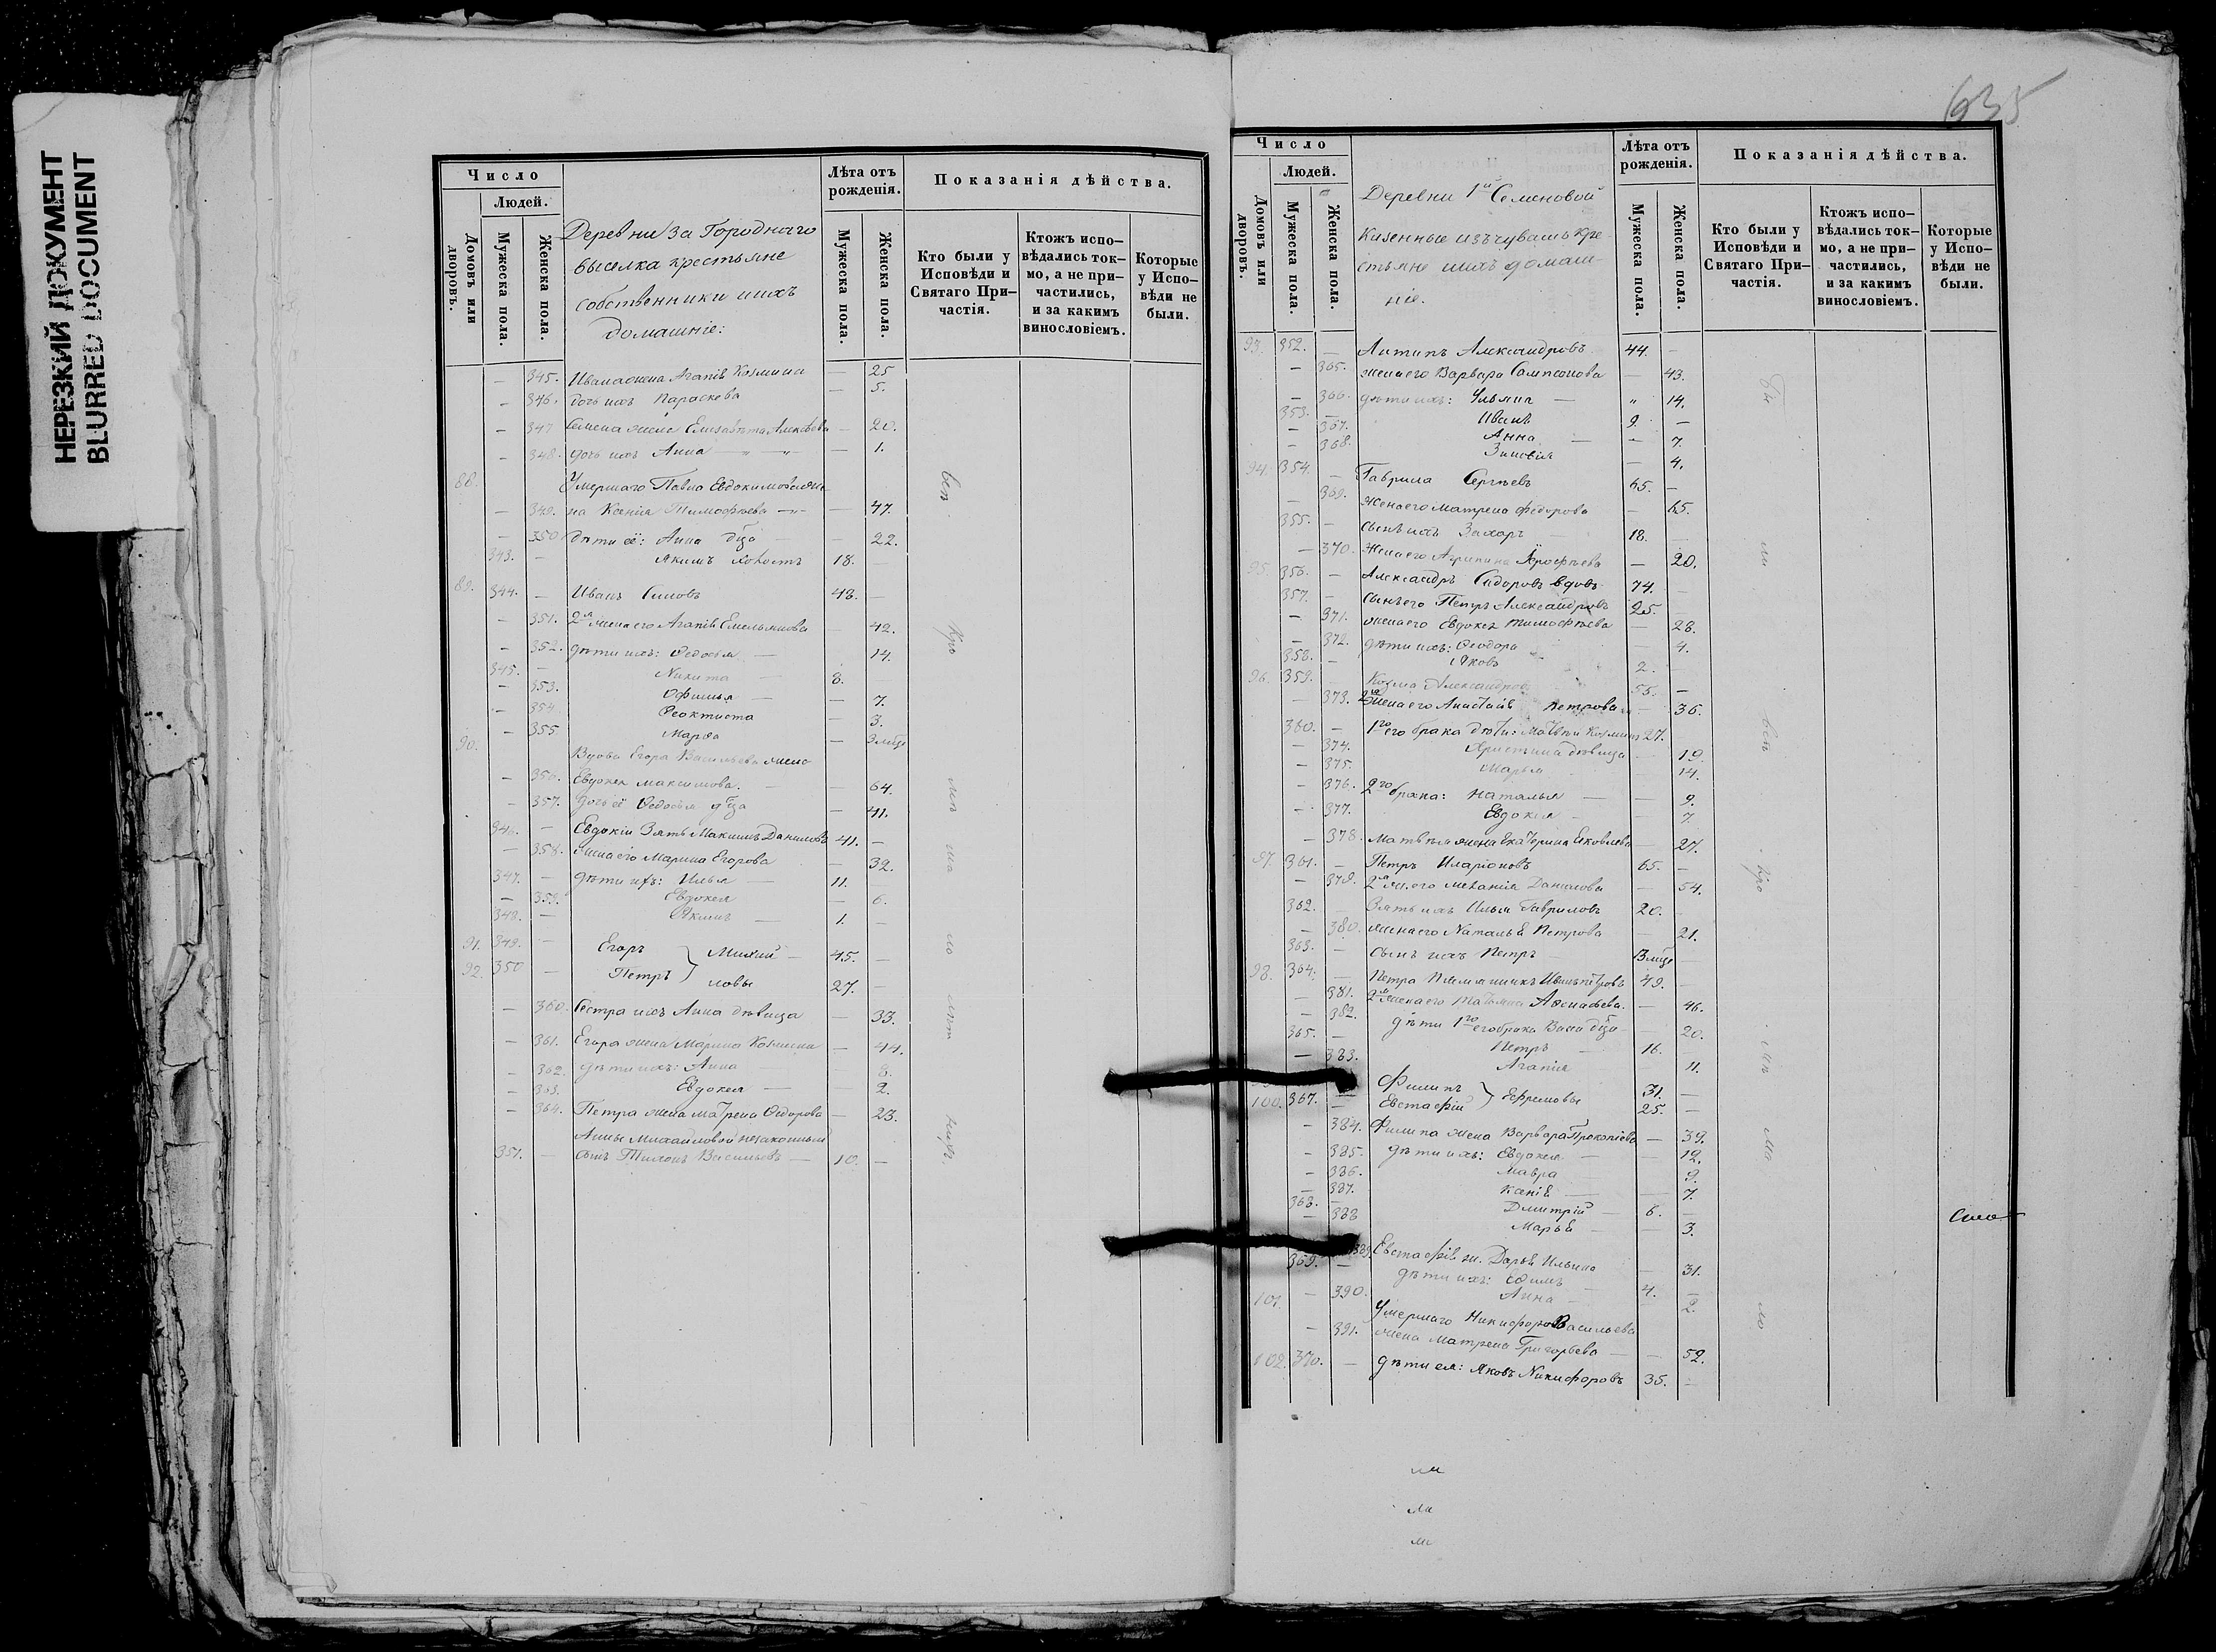 НЕРЕЗКИЙ ДОКУМЕНТ
BLURRED DOCUMENT
Число
Людей.
Домовъ или дворовъ.
Мужеска пола.
Женска пола.
Деревни за Городнаго
выселка крестьяне
собственники и ихъ
домашніе:
Лѣта отъ рожденія.
Мужеска пола.
Женска пола.
Показанія дѣйства.
Кто были у Исповѣди и Святаго При–частія.
Ктожъ испо–вѣдались ток–мо, а не при–частились, и за какимъ винословіемъ.
Которые у Испо–вѣди не были.
— 345. Ивана жена Агапія Козмина — 25
— 346. дочь ихъ Параскева — 5.
— 347 Семена жена Елисавета Алексѣева — 20.
— 348. дочь ихъ Анна — 1.
88. Умершаго Павла Евдокимова же–
— 349. на Ксенія Тимофѣева — 47.
— 350 дѣти её: Анна дѣца — 22.
343. — Якимъ холостъ 18. —
89. 344. — Иванъ Симовъ 48. —
— 351. 2я жена его Агапія Емельянова 42.
— 352. дѣти ихъ: Ѳедосья — 14.
345. — Никита — 8. —
— 353. Офимья — 7.
— 354 Ѳеоктиста — 3.
— 355 Марѳа — 3 мѣц
90. Вдова Егора Васильева жена
— 356. Евдокея Максимова. — 64.
— 357. дочь её Ѳедосья дѣца 41.
346. — Евдокіи Зять Максимъ Даниловъ 41. —
— 358. жена его Марина Егорова — 32.
347. — дѣти ихъ: Илья — 11. —
— 359. Евдокея — 6.
348. — Якимъ — 1. —
91. 349. — Егоръ } Михай– 45. —
92. 350 — Петръ } ловы 27. —
— 360. Сестра ихъ Анна дѣвица — 33.
— 361. Егора жена Марина Козмина — 44.
— 362. дѣти ихъ: Анна — 8.
— 363. Евдокея — 2.
— 364. Петра жена Матрена Ѳедорова — 23.
Анны Михайловой незаконный
351. — сынъ Тихонъ Васильевъ — 10. —
635
Число
Людей.
Домовъ или дворовъ.
Мужеска пола.
Женска пола.
Деревни 1й Семеновой
Казенные изъ чувашъ кре–
стьяне и ихъ домаш–
ніе.
Лѣта отъ рожденія.
Мужеска пола.
Женска пола.
Показанія дѣйства.
Кто были у Исповѣди и Святаго При–частія.
Ктожъ испо–вѣдались ток–мо, а не при–частились, и за какимъ винословіемъ.
Которые у Испо–вѣди не были.
93. 352. — Антипъ Александровъ 44. —
— 365. жена его Варвара Сампсонова — 43.
— 366. дѣти ихъ: Ульяна — " 14.
353. — Иванъ 9. —
— 367. Анна — 7.
— 368. Зиновія — 4.
94. 354. — Гаврила Сергѣевъ 65. —
— 369. Жена его Матрена Федорова — 65.
355. — сынъ ихъ Захаръ 18. —
— 370. Жена его Агрипина Ерофѣева — 20.
95. 356. — Александръ Сидоровъ вдовъ 74. —
357. — сынъ его Петръ Александровъ 25. —
— 371. жена его Евдокея Тимофѣева — 28.
— 372. дѣти ихъ: Ѳеодора — 4.
358. — Яковъ 2.
96. 359. Козма Александровъ 55. —
— 373. 2я жена его Анастасія Петрова — 36.
360. — 1го его брака дѣти: Матвѣй Козминъ 27.
— 374. Христина дѣвица — 19.
— 375. Марья 14.
— 376. 2го брака: Наталья — 9.
— 377. Евдокея — 7.
— 378. Матвѣя жена Екатерина Яковлева 27.
97. 361. — Петръ Иларіоновъ 65. —
— 379. 2я ж. его Меланія Данилова — 54.
362. — Зять ихъ Илья Гавриловъ 20. —
— 380. жена его Наталья Петрова — 21.
363. — Сынъ ихъ Петръ 3 мѣц —
98. 364. — Петра племянникъ Иванъ Петровъ 49. —
— 381. 2я жена его Татьяна — 46.
— 382. дѣти 1го его брака дѣца 20.
365. — Петръ 16. —
— 383. Агапія 11.
Филипъ } Ефремовы 31. —
100. 367. — Евстафій } 25. —
— 384. Филипа жена Варвара Прокопіева — 39.
— 385. дѣти ихъ: Евдокея — 12.
— 386. Мавра — 9.
— 387. Ксенія — 7.
368. — Дмитрій — 6. —
— 388 Марья — 3.
389. Евстафія ж. Дарья Ильина 31.
369. — дѣти ихъ: Ефимъ 4. —
— 390. Анна 2.
101. Умершаго Никифора Васильева
— 391. жена Матрена Григорьева — 52.
102. 370. — дѣти ея: Яковъ Никифоровъ 35. —